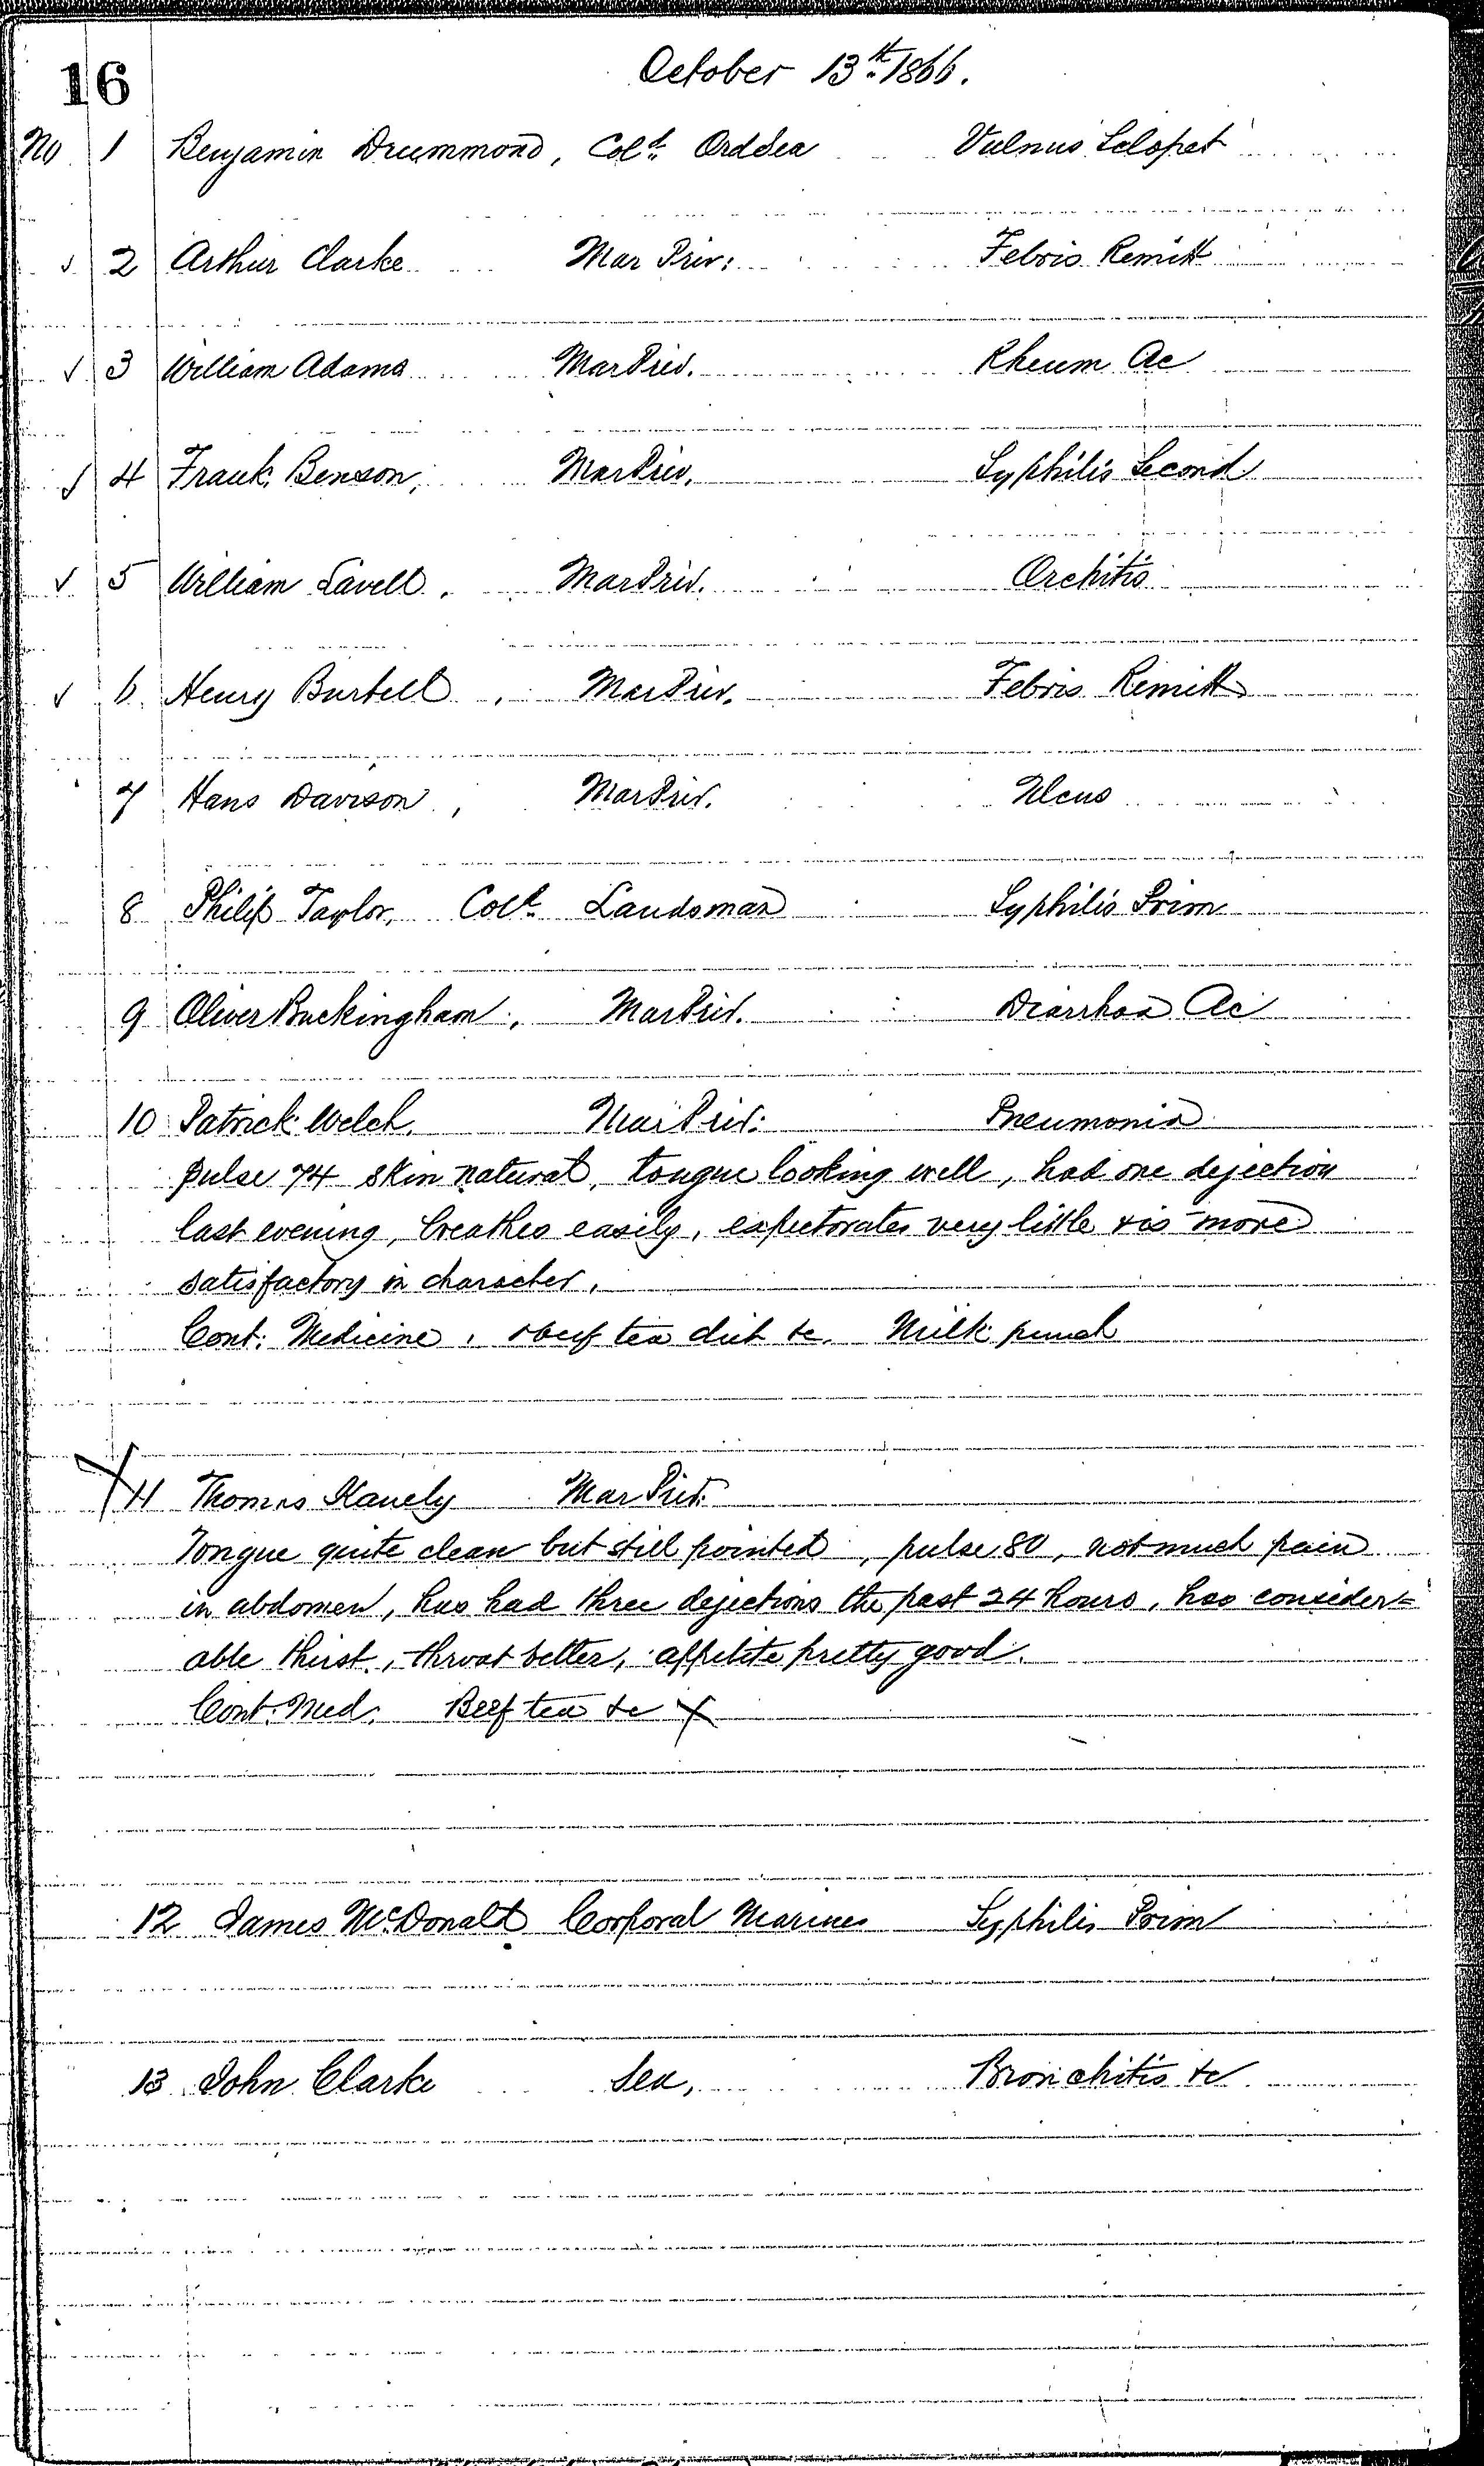 16
October 13th. 1866.
No 1 Benjamin Drummond, Cold. Ord Sea Vulnus Sclopet
✓ 2 Arthur Clarke Mar Priv: Febris Remitt
✓ 3 William Adams Mar Priv. Rheum Ac
✓ 4 Frank Benson, Mar Priv. Syphilis Second
✓ 5 William Lavell. Mar Priv. Orchitis
✓ 6 Henry Burtell, Mar Priv. Febris Remitt
7 Hans Davison, Mar Priv. Ulcus
8 Philip Taylor, Cold. Landsman Syphilis Prim
9 Oliver Buckingham, Mar Priv. Diarrhoa Ac
10 Patrick Welch. Mar Priv: Pneumonia
pulse 74 skin natural, tongue looking well, had one dejection
last evening, breathes easily, expectorates very little & is more
satisfactory in character.
Cont: Medicine, & beef tea diet &c. Milk punch
11 Thomas Mar Priv.
Tongue quite clean but still pointed, pulse 80, not much pain
in abdomen, has had three dejections the past 24 hours, has consider=
able thirst, throat better, appetite pretty good.
Cont. Med. Beef tea &c
12 James McDonald Corporal Marines Syphilis Prim
13 John Clarke Sea, Bronchitis &c